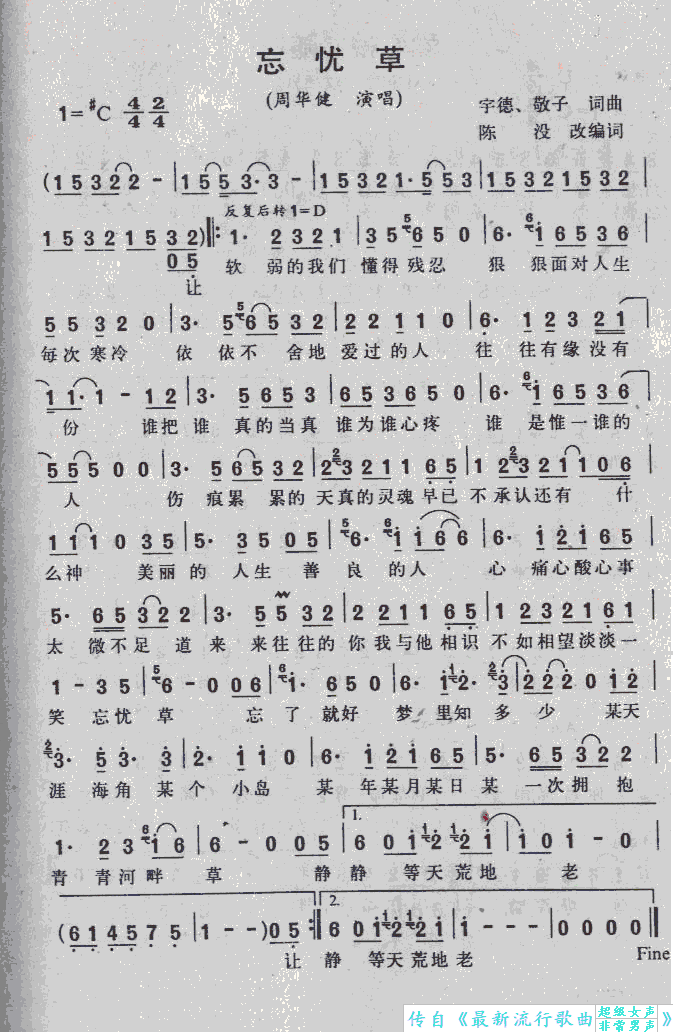 忘忧草
(周华健 演唱)
1=#C 4/4 2/4
宇德、敬子 词曲
陈没 改编词
(1 5 3 2 2 - | 1 5 5 3· 3 - | 1 5 3 2 1· 5 5 3 | 1 5 3 2 1 5 3 2 |
反复后转1=D
1 5 3 2 1 5 3 2) ‖: 1· 2 3 2 1 | 3 5 5 6 5 0 | 6· 6 1 6 5 3 6 |
0 5
让 软 弱的我们 懂得残忍 狠 狠面对人生
5 5 3 2 0 | 3· 5 5 6 5 3 2 | 2 2 1 1 0 | 6· 1 2 3 2 1 |
每次寒冷 依 依不 舍地 爱过的人 往 往有缘没有
1 1· 1 - 1 2 | 3· 5 6 5 3 | 6 5 3 6 5 0 | 6· 6 1 6 5 3 6 |
份 谁把谁 真的当真 谁为谁心疼 谁 是惟一谁的
5 5 5 0 0 | 3· 5 6 5 3 2 | 2 2 3 2 1 1 6 5 | 1 2 3 2 1 1 0 0 6 |
人 伤 痕累 累的 天真的灵魂 早已 不承认还有 什
1 1 1 0 3 5 | 5· 3 5 0 5 | 5 6· 6 1 1 6 6 | 6· 1 2 1 6 5 |
么神 美丽的 人生 善 良 的人 心 痛心酸心事
5· 6 5 3 2 2 | 3· 5 5 3 2 | 2 2 1 1 6 5 | 1 2 3 2 1 6 1 |
太 微不足 道 来 来往往的 你我与他相识 不如相望淡淡一
1 - 3 5 | 5 6 - 0 0 6 | 6 1· 6 5 0 | 6· 1 1 2· 2 3 | 2 2 2 0 1 2 |
笑 忘忧 草 忘 了 就好 梦 里知 多 少 某天
2 3· 5 3· 3 | 2· 1 1 0 | 6· 1 2 1 6 5 | 5· 6 5 3 2 2 |
涯 海角 某 个 小岛 某 年某月某日 某 一次拥 抱
1.
1· 2 3 6 1 6 | 6 - 0 0 5 | 6 0 1 1 2 1 2 1 | 1 0 1 - 0 |
青 青河 畔 草 静 静 等天 荒地 老
2.
(6 1 4 5 7 5 | 1 - - ) 0 5 :‖ 6 0 1 1 2 1 2 1 | 1 - - - | 0 0 0 0 ‖
让 静 等天 荒地老
Fine
传自《最新流行歌曲超级女声非常男声》